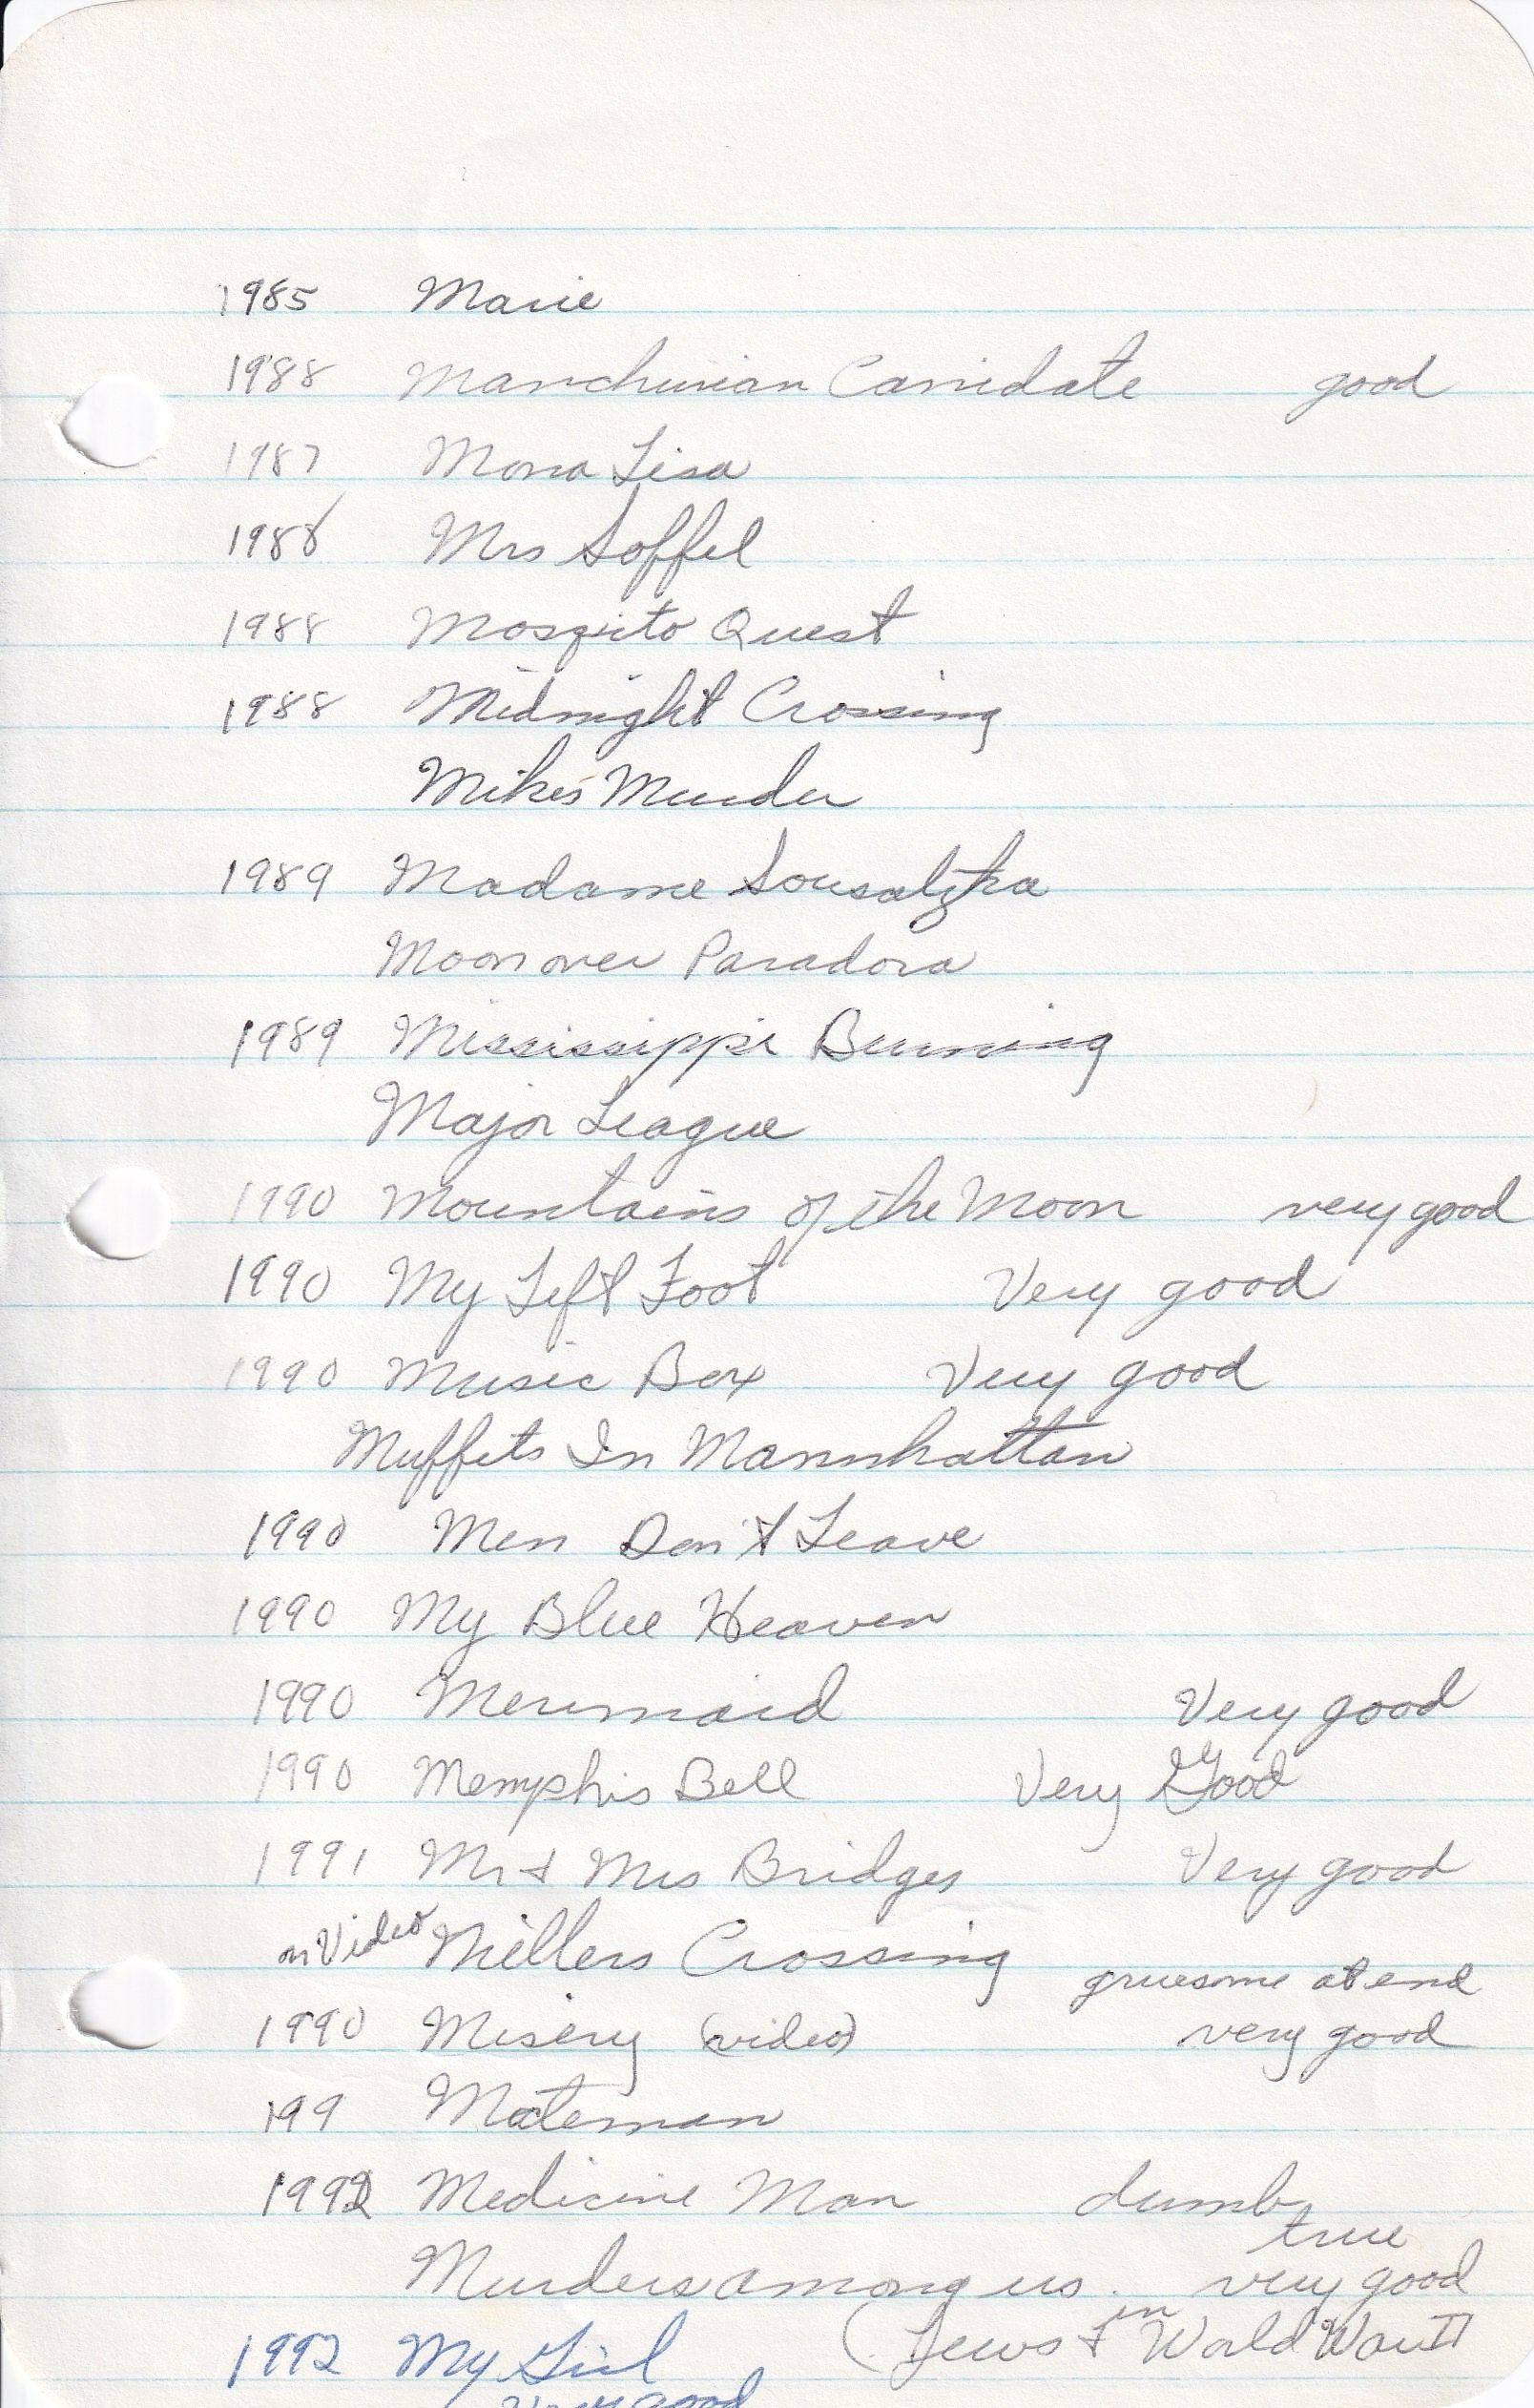 1985 Marie
1988 Manchurian Canidate good
1987 Mona Lisa
1988 Mrs Soffel
1988 Mosquito Quest
1988 Midnight Crossing
Mikes Murder
1989 Madame Sousatzka
Moon over Paradora
1989 Mississippi Burning
Major League
1990 Mountains of the Moon very good
1990 My Left Foot Very good
1990 Music Box Very good
Muffets In Mannhattan
1990 Men Don't Leave
1990 My Blue Heaven
1990 Mermaid Very good
1990 Memphis Bell Very Good
1991 Mr & Mrs Bridges Very good
on Video Millers Crossing gruesome at end
1990 Misery (video) very good
199 Mateman
1992 Medicine Man dumb
true
Murders among us. very good
(Jews & in World War II
1992 My Girl
Very good